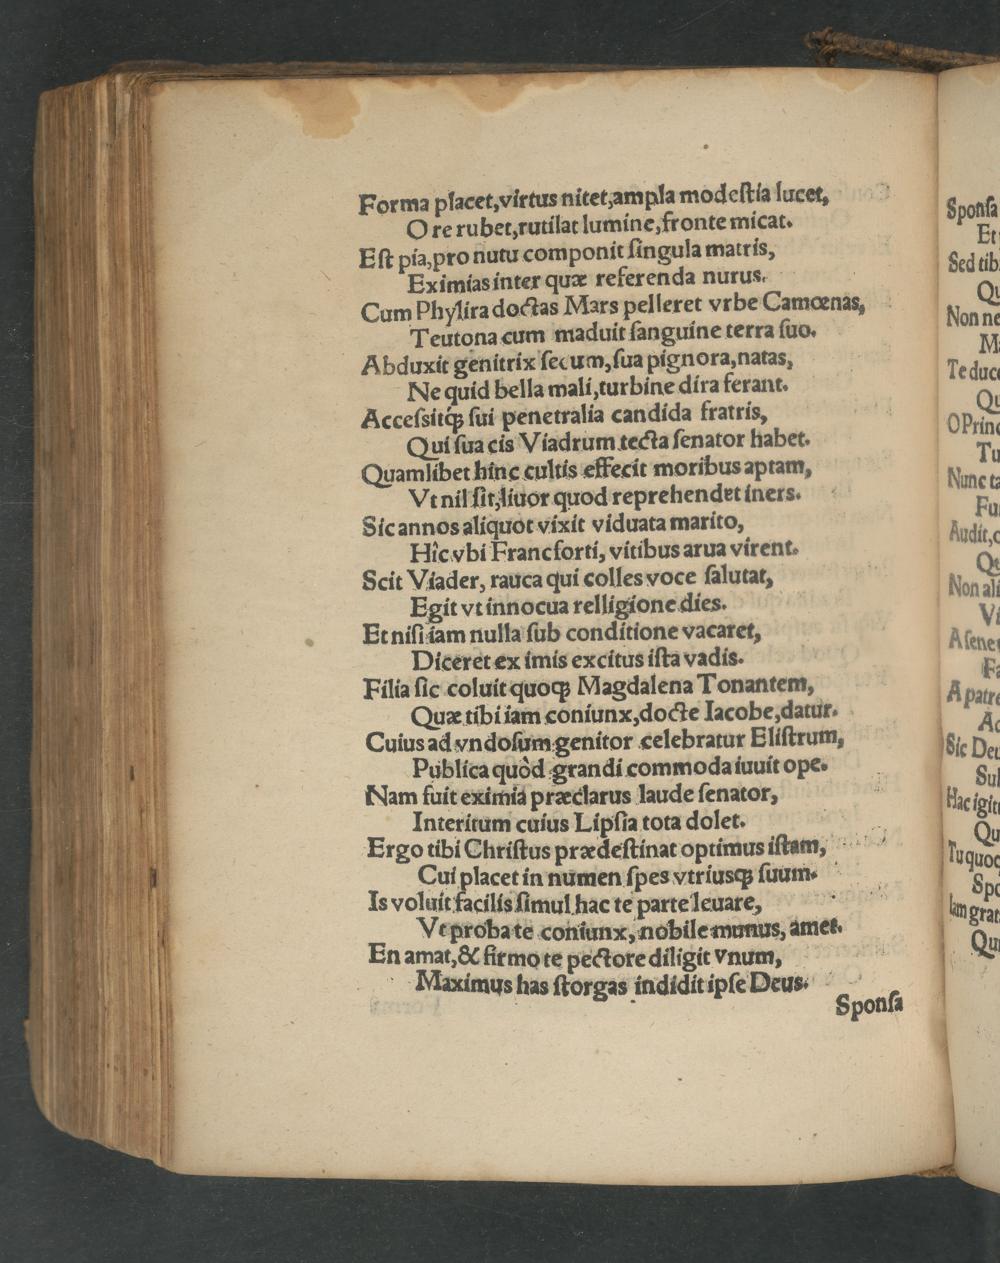 Forma placet,virtus nitet,ampla modeſtia lucet,
Ore rubet,rutilat lumine,fronte micat.
Eſt pia,pro nutu componit ſingula matris,
Eximias inter quæ referenda nurus.
Cum Phyſira doctas Mars pelleret vrbe Camœnas,
Teutona cum maduit ſanguine terra ſuo.
Abduxit genitrix ſecum,ſua pignora,natas,
Ne quid bella mali,turbine dira ferant.
Acceſsitq́ꝫ ſui penetralia candida fratris,
Qui ſua cis Viadrum tecta ſenator habet.
Quamlibet hinc cultis effecit moribus aptam,
Vt nil ſit,liuor quod reprehendet iners.
Sic annos aliquot vixit viduata marito,
Hîc vbi Francforti, vitibus arua virent.
Scit Viader, rauca qui colles voce ſalutat,
Egit vt innocua relligione dies.
Et niſi iam nulla ſub conditione vacaret,
Diceret ex imis excitus iſta vadis.
Filia ſic coluit quoqꝫ Magdalena Tonantem,
Quæ tibi iam coniunx,docte Iacobe,datur.
Cuius ad vndoſum genitor celebratur Eliſtrum,
Publica quòd grandi commoda iuuit ope.
Nam fuit eximia præclarus laude ſenator,
Interitum cuius Lipſia tota dolet.
Ergo tibi Chriſtus prædeſtinat optimus iſtam,
Cui placet in numen ſpes vtriusqꝫ ſuum.
Is voluit facilis ſimul hac te parte leuare,
Vt proba te coniunx, nobile munus, amet.
En amat,& firmo te pectore diligit vnum,
Maximus has ſtorgas indidit ipſe Deus.
Sponſa
Sponſa
Et
Sed tib
Qu
Non ne
Ma
Te duce
Qu
O Princ
Tu
Nunc ta
Fu
Audit,
Qu
Non ali
Vi
A ſene
Fa
A patre
Ac
Sic Deu
Sul
Hac igit
Qu
Tu quoq
Spo
Iam grat
Qu